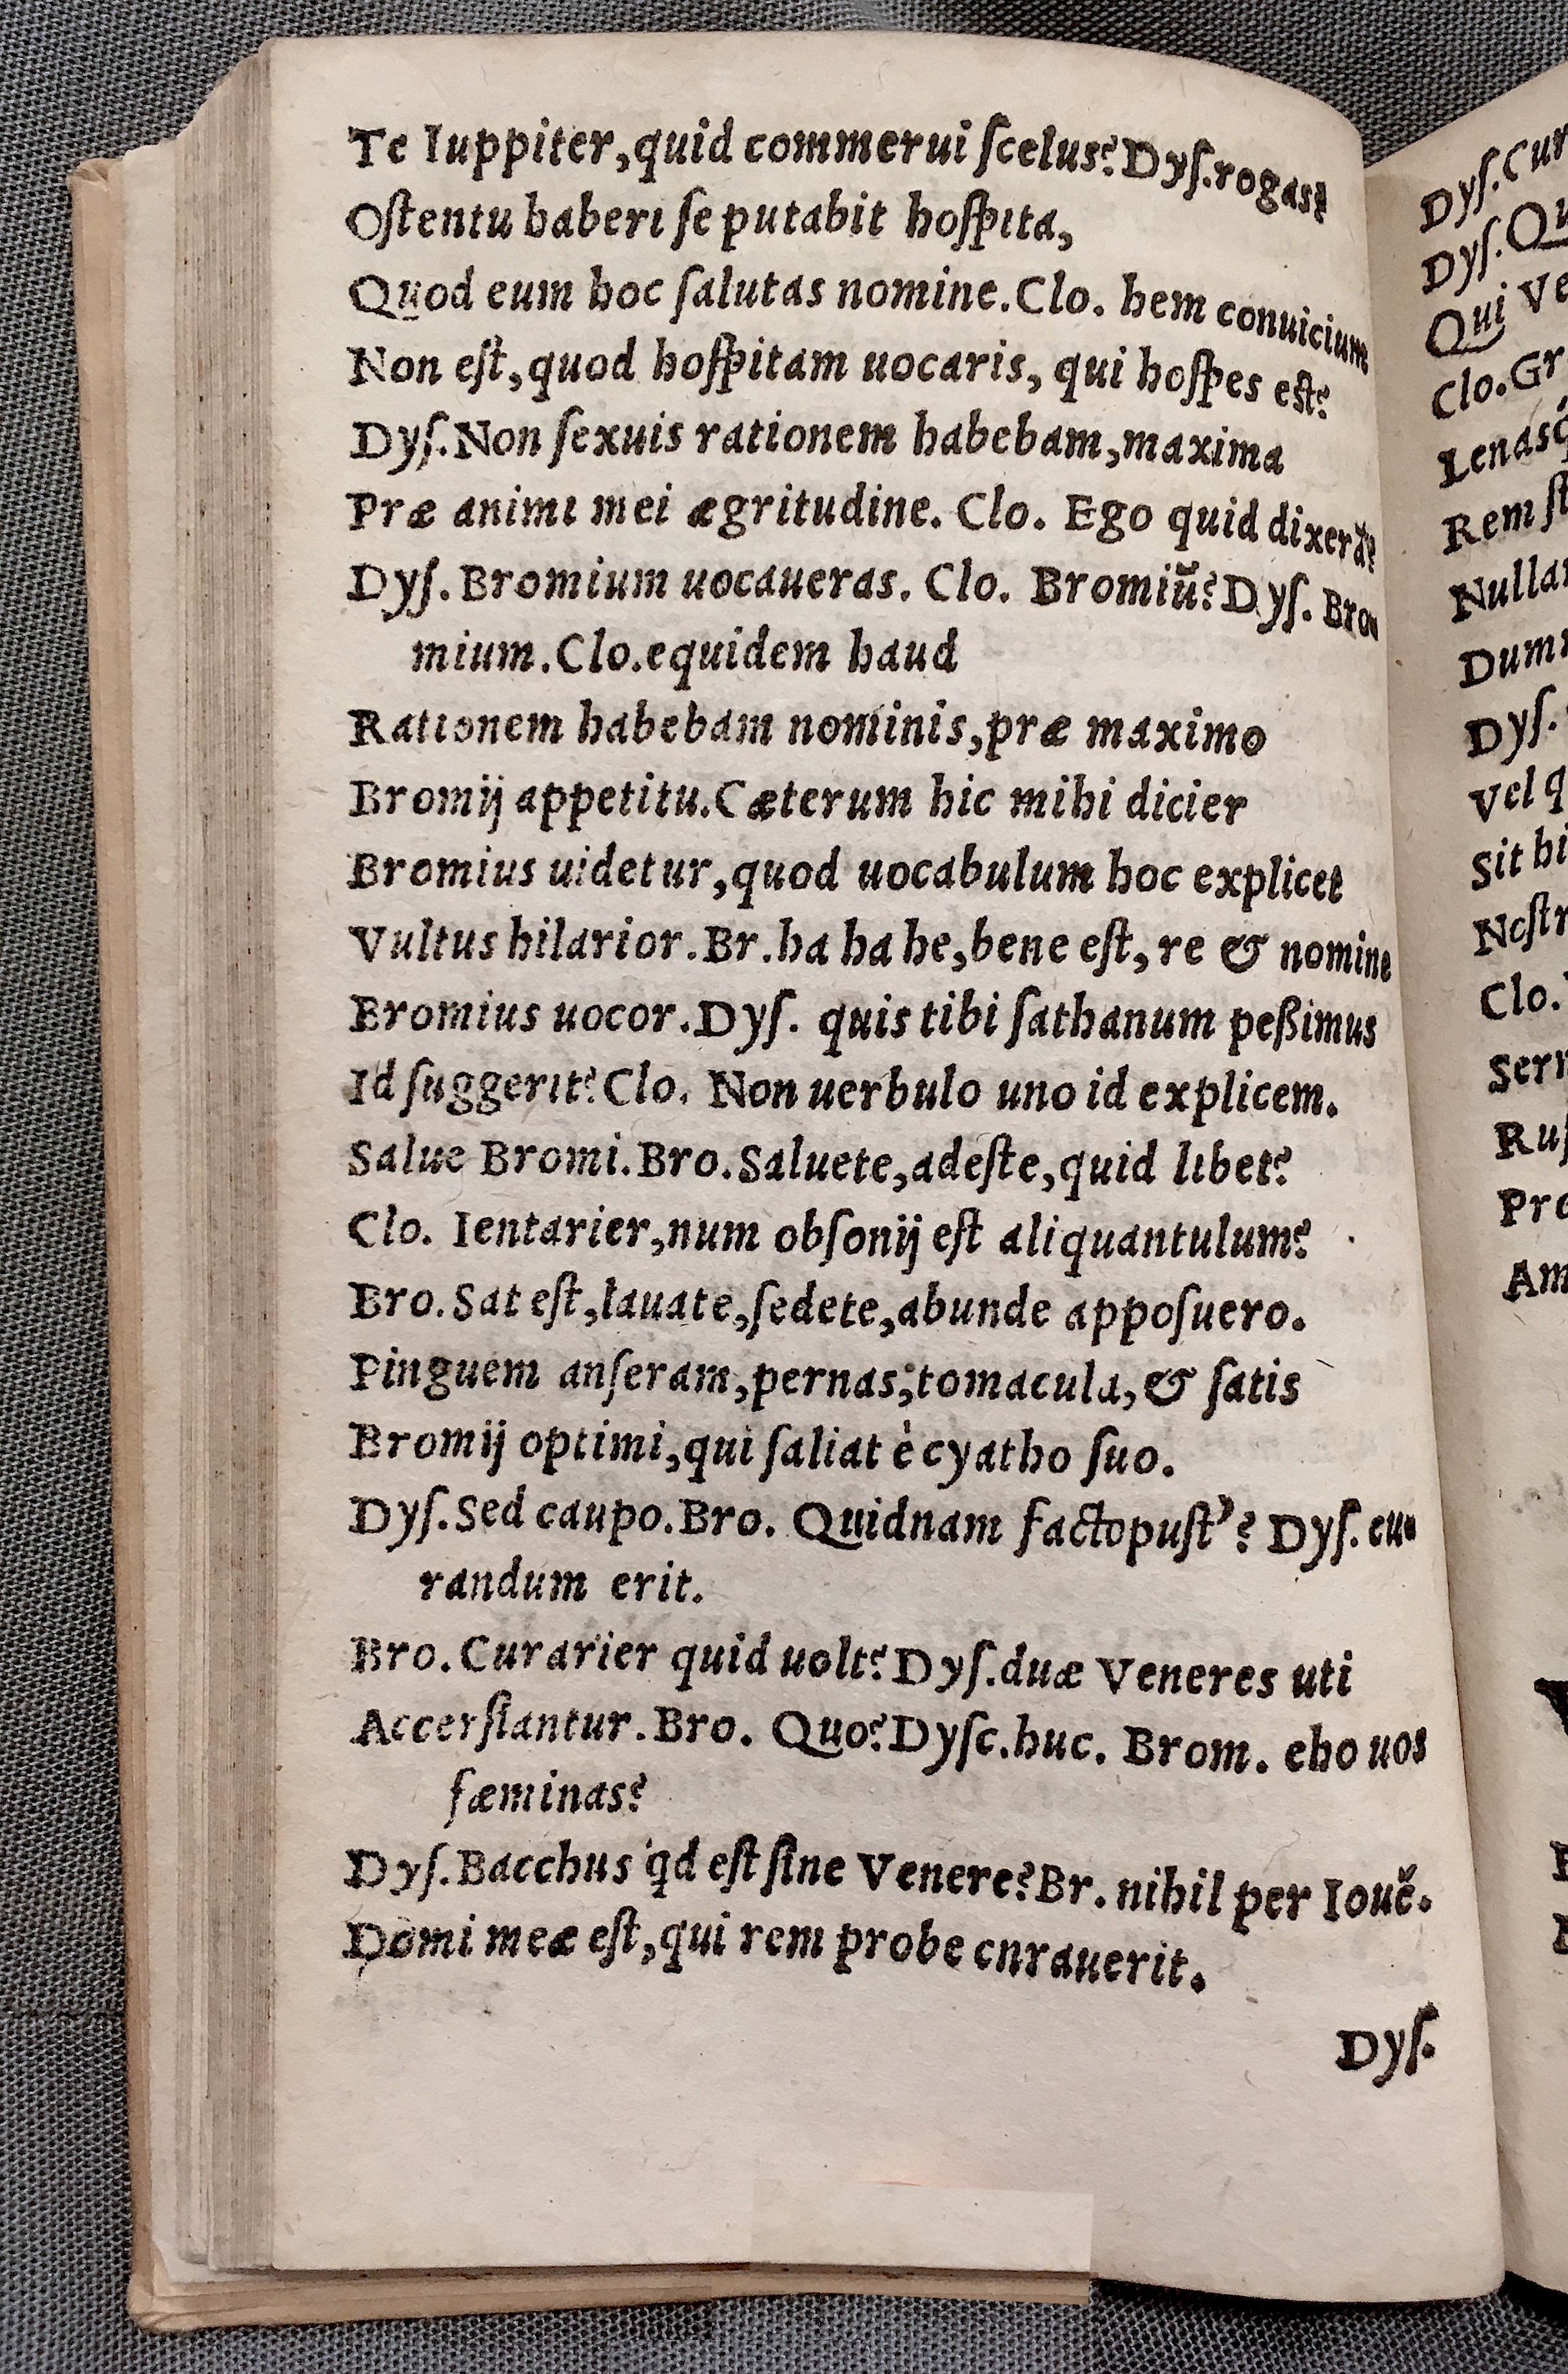 Te Iuppiter, quid commerui ſcelus? Dyſ. rogas?
Oſtentu haberi ſe putabit hoſpita,
Quod eum hoc ſalutas nomine. Clo. hem conuicium
Non eſt, quod hoſpitam uocaris, qui hoſpes eſt?
Dyſ. Non ſexuis rationem habebam, maxima
Præ animi mei ægritudine. Clo. Ego quid dixerā?
Dyſ. Bromium uocaueras. Clo. Bromiū? Dyſ. Bro-
mium. Clo. equidem haud
Rationem habebam nominis, præ maximo
Bromij appetitu. Cæterum hic mihi dicier
Bromius uidetur, quod uocabulum hoc explicet
Vultus hilarior. Br. ha ha he, bene eſt, re & nomine
Bromius uocor. Dyſ. quis tibi ſathanum peßimus
Id ſuggerit? Clo. Non uerbulo uno id explicem.
Salue Bromi. Bro. Saluete, adeſte, quid libet?
Clo. Ientarier, num obſonij eſt aliquantulum?
Bro. Sat eſt, lauate, ſedete, abunde appoſuero.
Pinguem anſeram, pernas, tomacula, & ſatis
Bromij optimi, qui ſaliat è cyatho ſuo.
Dyſ. Sed caupo. Bro. Quidnam factopuſt’? Dyſ. cu-
randum erit.
Bro. Curarier quid uolt? Dyſ. duæ Veneres uti
Accerſiantur. Bro. Quo? Dyſc. huc. Brom. eho uos
fæminas?
Dyſ. Bacchus qd eſt ſine Venere? Br. nihil per Iouē.
Domi meæ eſt, qui rem probe cnrauerit.
Dyſ.
Dyſ. Cur
Dyſ. Qu
Qui Ve
Clo. Gr
Rem ſt
Nullar
Dyſ.
Vel q
Sit hi
Noſtr
Clo.
Ruſ
Pro
Am